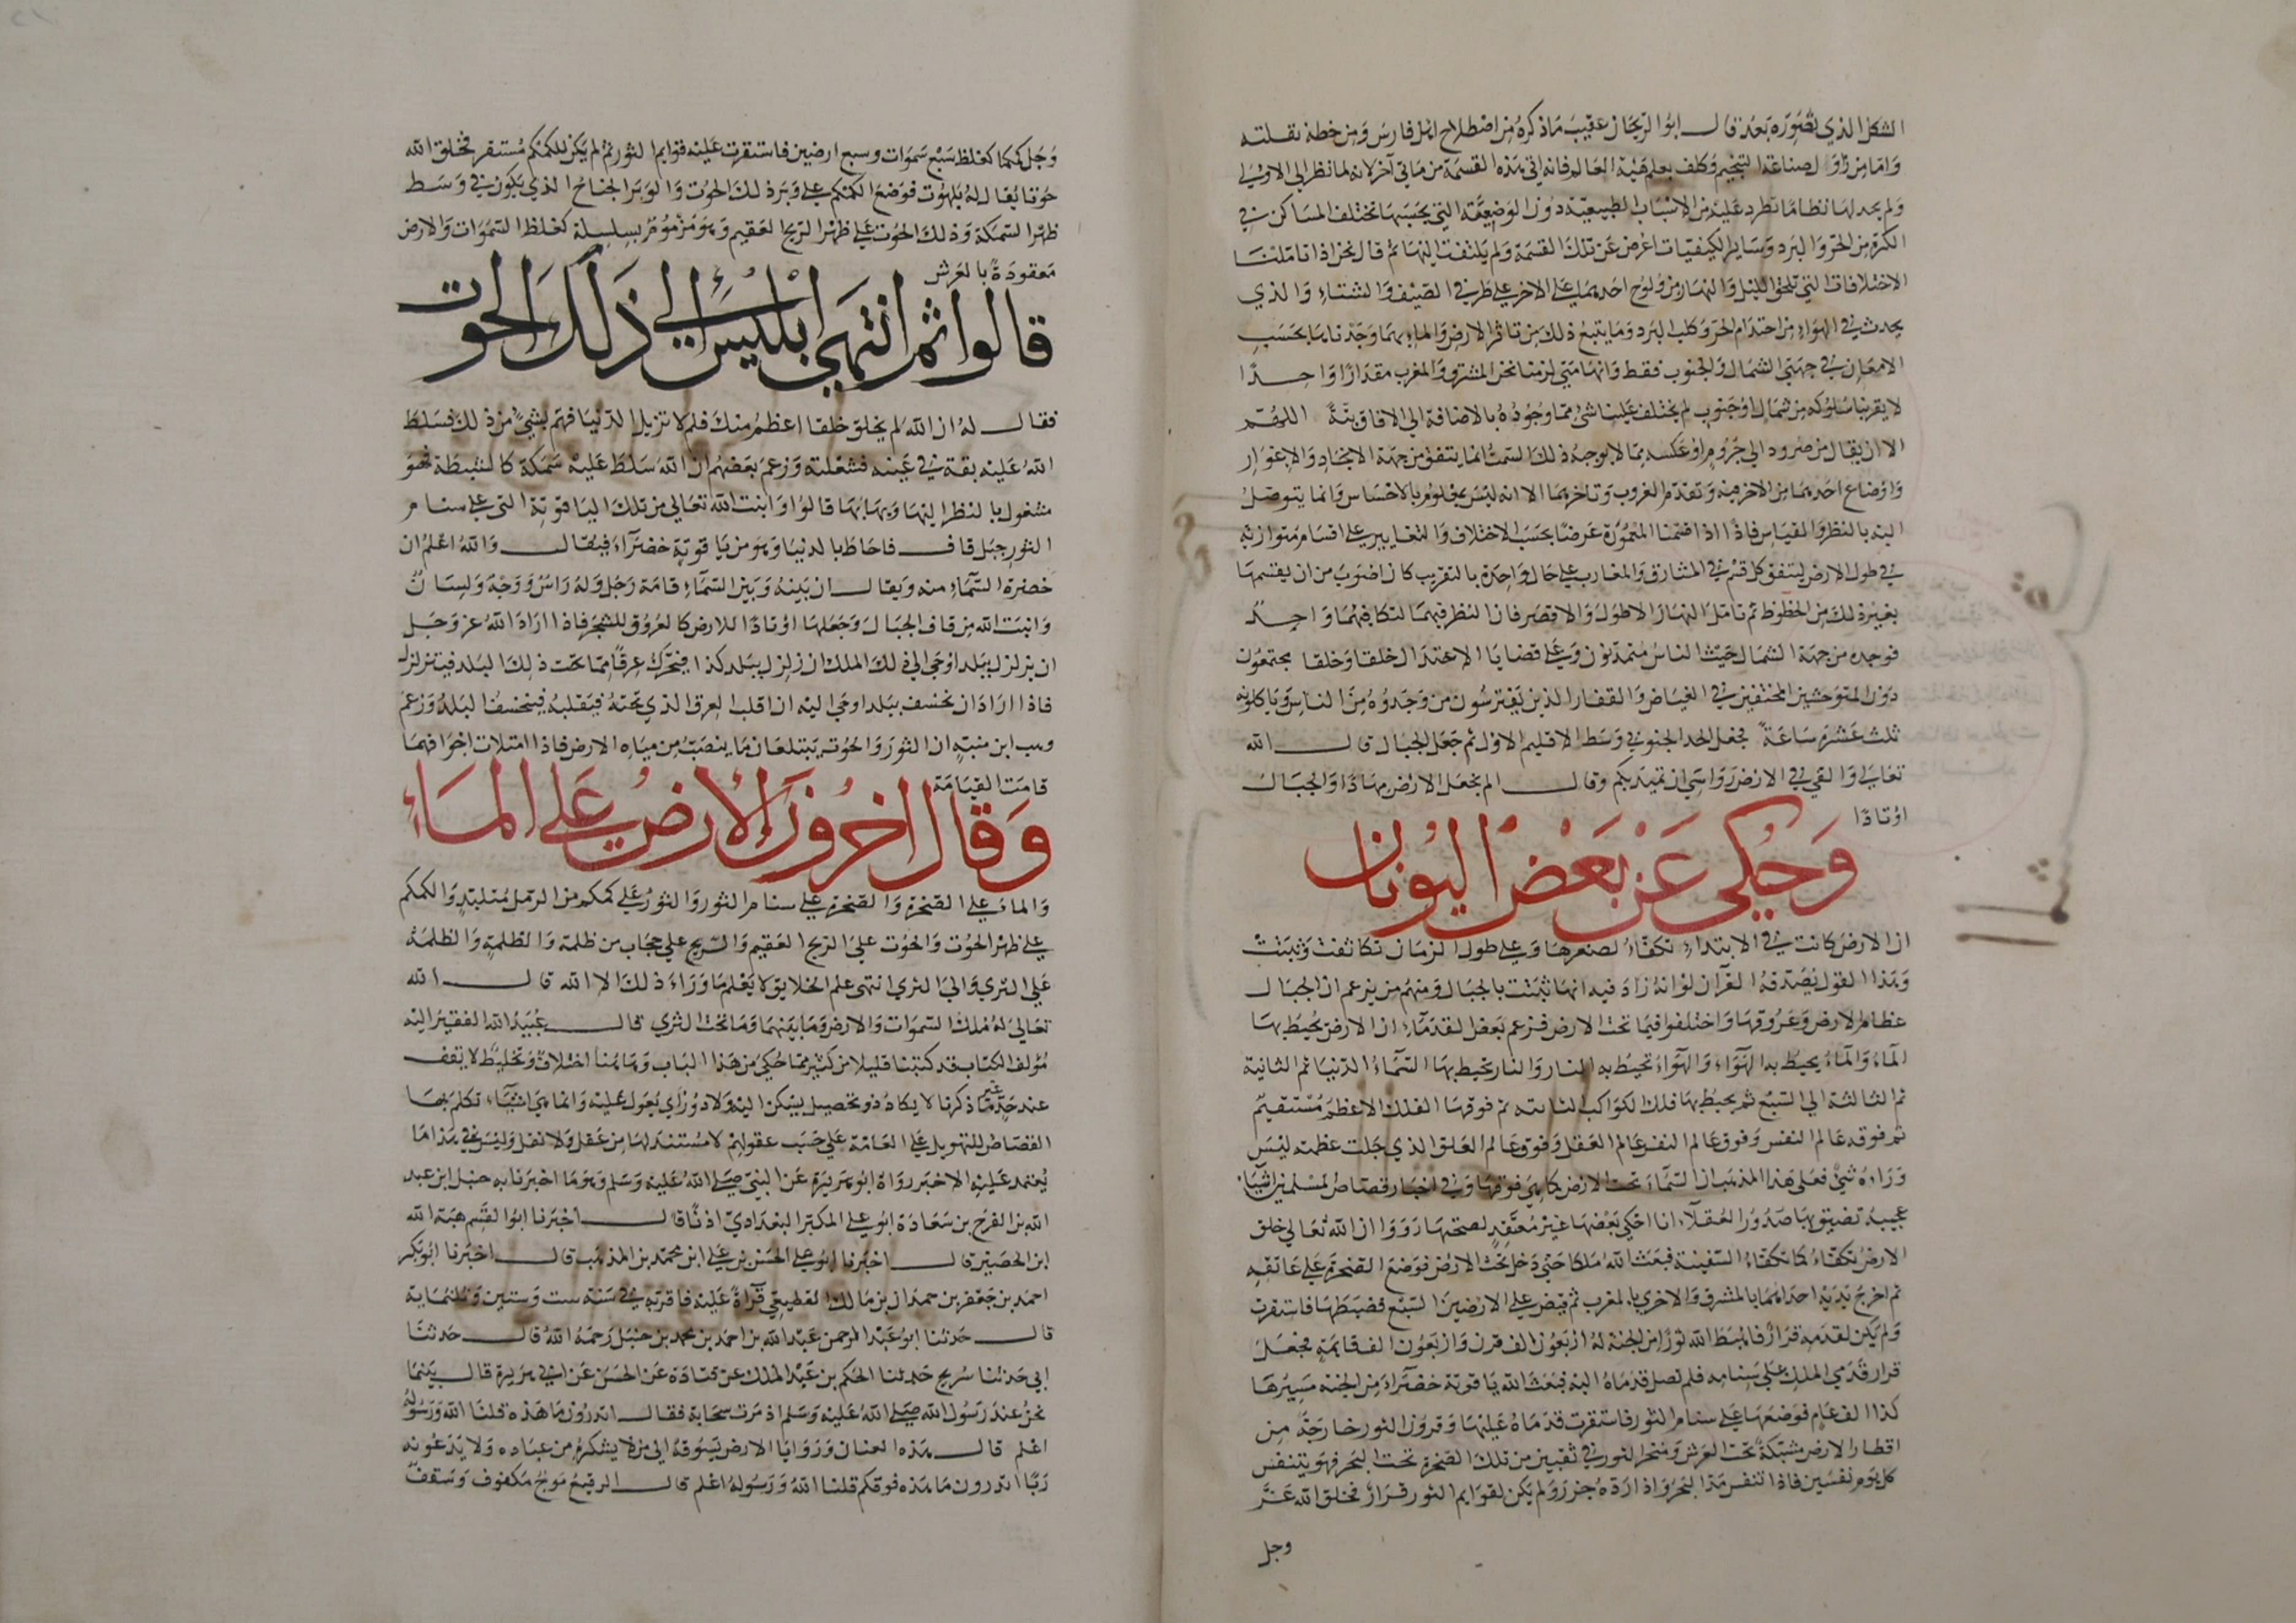 الشكل الذي نصوره بعد قال ابو الريحان عقيب ما ذكره من اصطلاح اهل فارس ومن خطه نقلته
واما من زاول صناعة التنجيم وكلف بعلم هيئة العالم فانه اتى هذه القسمة من مأتى آخر لانه لما نظر الى الاولى
ولم يجد لها نظاما تطرد عليه من الاسباب الطبيعية دون الوضعية التي بحسبها تختلف المساكن في
الكرة من الحر والبرد وساير الكيفيات اعرض عن تلك القسمة ولم يلتفت اليها ثم قال نحن اذا تاملنا
الاختلافات التي تلحق الليل والنهار من ولوج احدهما على الاخر على طرفي الصيف والشتاء والذي
يحدث في الهواء من احتدام الحر وكلب البرد وما يتبع ذلك من تاثر الارض والماء بهما وجدناها بحسب
الامعان في جهتي الشمال والجنوب فقط وانها متى لزمنا نحن المشرق والمغرب مقدارا واحدا
لا يقربنا سلوكه من شمال او جنوب لم يختلف علينا شئ مما وجوده بالاضافة الى الافاق بتة اللهم
الا ان ينقال من صرود الى جروم او عكسه مما لا يوجبه ذلك السمت انما يتفق من جهة الانجاد والاغوار
واوضاع احدهما من الاخر فيه وتقدم الغروب وتاخرهما الا انه ليس بمعلوم بالاحساس وانما يتوصل
اليه بالنظر والقياس فاذا اذا قسمنا المعمورة عرضا بحسب الاختلاف والتغايير على اقسام متوازية
في طول الارض ليتفق كل قسم في المشارق والمغارب على حال واحدة بالتقريب كان اضوب من ان يقسمها
بغير ذلك من الخطوط ثم تامل النهار الاطول والاقصر فان النظر فيهما لتكافئهما واحد
فوجده من جهة الشمال حيث الناس متمدنون وعلى قضايا الاعتدال خلقا وخلقا يجتمعون
دون المتوحشين المختفين في الغياض والقفار الذين يفترسون من وجدوه من الناس وياكلونه
ثلث عشرة ساعة فجعل الحد الجنوبي وسط الاقليم الاول ثم جعل الجبال قال الله
تعالى والقى في الارض رواسي ان تميد بكم وقال الم نجعل الارض مهادا والجبال
اوتادا
وحكي عن بعض اليونان
ان الارض كانت في الابتداء تكفأ لصغرها وعلى طول الزمان تكاثفت وثبتت
وهذا القول يصدقه القرآن لو انه زاد فيه انها ثبتت بالجبال ومنهم من يزعم ان الجبال
عظام الارض وعروقها واختلفوا فيما تحت الارض فزعم بعض القدماء ان الارض يحيط بها
الماء والماء يحيط به الهواء والهواء تحيط به النار والنار تحيط بها السماء الدنيا ثم الثانية
ثم الثالثة الى السبع ثم يحيط بها فلك الكواكب الثابته ثم فوقها الفلك الاعظم مستقيم
ثم فوقه عالم النفس وفوق عالم النفس عالم العقل وفوق عالم العقل الذي جلت عظمته ليس
وراءه شئ فعلى هذا المذهب ان السماء تحت الارض كما هي فوقها وفي اخبار قصاص المسلمين اشياء
عجيبة تضيق بها صدور العقلاء انا احكي بعضها غير معتقد لصحتها رووا ان الله تعالى خلق
الارض تكفأ كما تكفأ السفينة فبعث الله ملكا حتى دخل تحت الارض فوضع الصخرة على عاتقه
ثم اخرج يديه احداهما بالمشرق والاخرى بالمغرب ثم قبض على الارضين السبع فضبطها فاستقرت
ولم يكن لقدمه قرار فاهبط الله ثورا من الجنة له اربعون الف قرن واربعون الف قايمة فجعل
قرار قدمي الملك على سنامه فلم تصل قدماه اليه فبعث الله ياقوتة خضراء من الجنة مسيرها
كذا الف عام فوضعها على سنام الثور فاستقرت قدماه عليها وقرون الثور خارجة من
اقطار الارض مشبكة تحت العرش ومنخر الثور في ثقبين من تلك الصخرة تحت البحر فهو يتنفس
كل يوم نفسين فاذا تنفس مد البحر واذا رده جزر ولم يكن لقوايم الثور قرار فخلق الله عز
وجل
شمال
وجل كمكما كغلظ سبع سموات وسبع ارضين فاستقرت عليه قوايم الثور ثم لم يكن للكمكم مستقر فخلق الله
حوتا يقال له بلهوت فوضع الكمكم على وبر ذلك الحوت والوبر الجناح الذي يكون في وسط
ظهر السمكة وذلك الحوت على ظهر الريح العقيم وهو مزموم بسلسلة كغلظ السموات والارض
معقودة بالعرش
قالوا ثم انتهى ابليس الى ذلك الحوت
فقال له ان الله لم يخلق خلقا اعظم منك فلم لا تزيل الدنيا فهم بشئ من ذلك فسلط
الله عليه بقة في عينه فشغلته وزعم بعضهم ان الله سلط عليه سمكة كالشبطة فهو
مشغول بالنظر اليها ويهابها قالوا وانبت الله تعالى من تلك الياقوتة التي على سنام
الثور جبل قاف فاحاط بالدنيا وهو من ياقوتة خضراء فيقال والله اعلم ان
خضرة السماء منه ويقال ان بينه وبين السماء قامة رجل وله راس ووجه ولسان
وانبت الله من قاف الجبال وجعلها اوتادا للارض كالعروق للشجر فاذا اراد الله عز وجل
ان يزلزل ببلد اوحى الى ذلك الملك ان زلزل ببلد كذا فيحرك عرقا مما تحت ذلك البلد فيتزلزل
فاذا اراد ان يخسف ببلد اوحى اليه ان اقلب العرق الذي تحته فيقلبه فيخسف البلد وزعم
وهب ابن منبه ان الثور والحوت يبتلعان ما ينصب من مياه الارض فاذا امتلات اجوافهما
قامت القيامة
وقال اخرون الارض على الماء
والماء على الصخرة والصخرة على سنام الثور والثور على كمكم من الرمل متلبد والكمكم
على ظهر الحوت والحوت على الريح العقيم والريح على حجاب من ظلمة والظلمة والظلمة
على الثرى والى الثرى انتهى علم الخلايق لا يعلم ما وراء ذلك الا الله قال الله
تعالى له ملك السموات والارض وما بينهما وما تحت الثرى قال عبيد الله الفقير اليه
مؤلف الكتاب قد كتبنا قليلا من كثير مما حكي من هذا الباب وهاهنا اختلاف وتخليط لا يقف
عند حد غير ما ذكرنا لا يكاد ذو تحصيل يسكن اليه ولا ذو راي يعول عليه وانما هي اشياء تكلم بها
القصاص للتهويل على العامة على حسب عقولهم لا مستند لها من عقل ولا نقل وليس في هذا ما
يعتمد عليه الا خبر رواه ابو هريرة عن النبي صلى الله عليه وسلم وهو ما اخبرنا به حنبل ابن عبد
الله بن الفرج بن سعادة ابو علي المكبر البغدادي اذنا قال اخبرنا ابو القسم هبة الله
ابن الحصين قال اخبرنا ابو علي الحسن بن علي ابن محمد بن المذهب قال اخبرنا ابو بكر
احمد بن جعفر بن حمدان بن مالك القطيعي قرآة عليه فاقر به في سنة ست وستين وثلثماية
قال حدثنا ابو عبد الرحمن عبد الله بن احمد بن محمد بن حنبل رحمه الله قال حدثنا
ابي حدثنا سريج حدثنا الحكم بن عبد الملك عن قتادة عن الحسن عن ابي هريرة قال بينما
نحن عند رسول الله صلى الله عليه وسلم اذ مرت سحابة فقال اتدرون ما هذه قلنا الله ورسوله
اعلم قال هذه العنان وروايا الارض يسوقه الى من لا يشكره من عباده ولا يدعونه
ربا اتدرون ما هذه فوقكم قلنا الله ورسوله اعلم قال الرقيع موج مكفوف وسقف